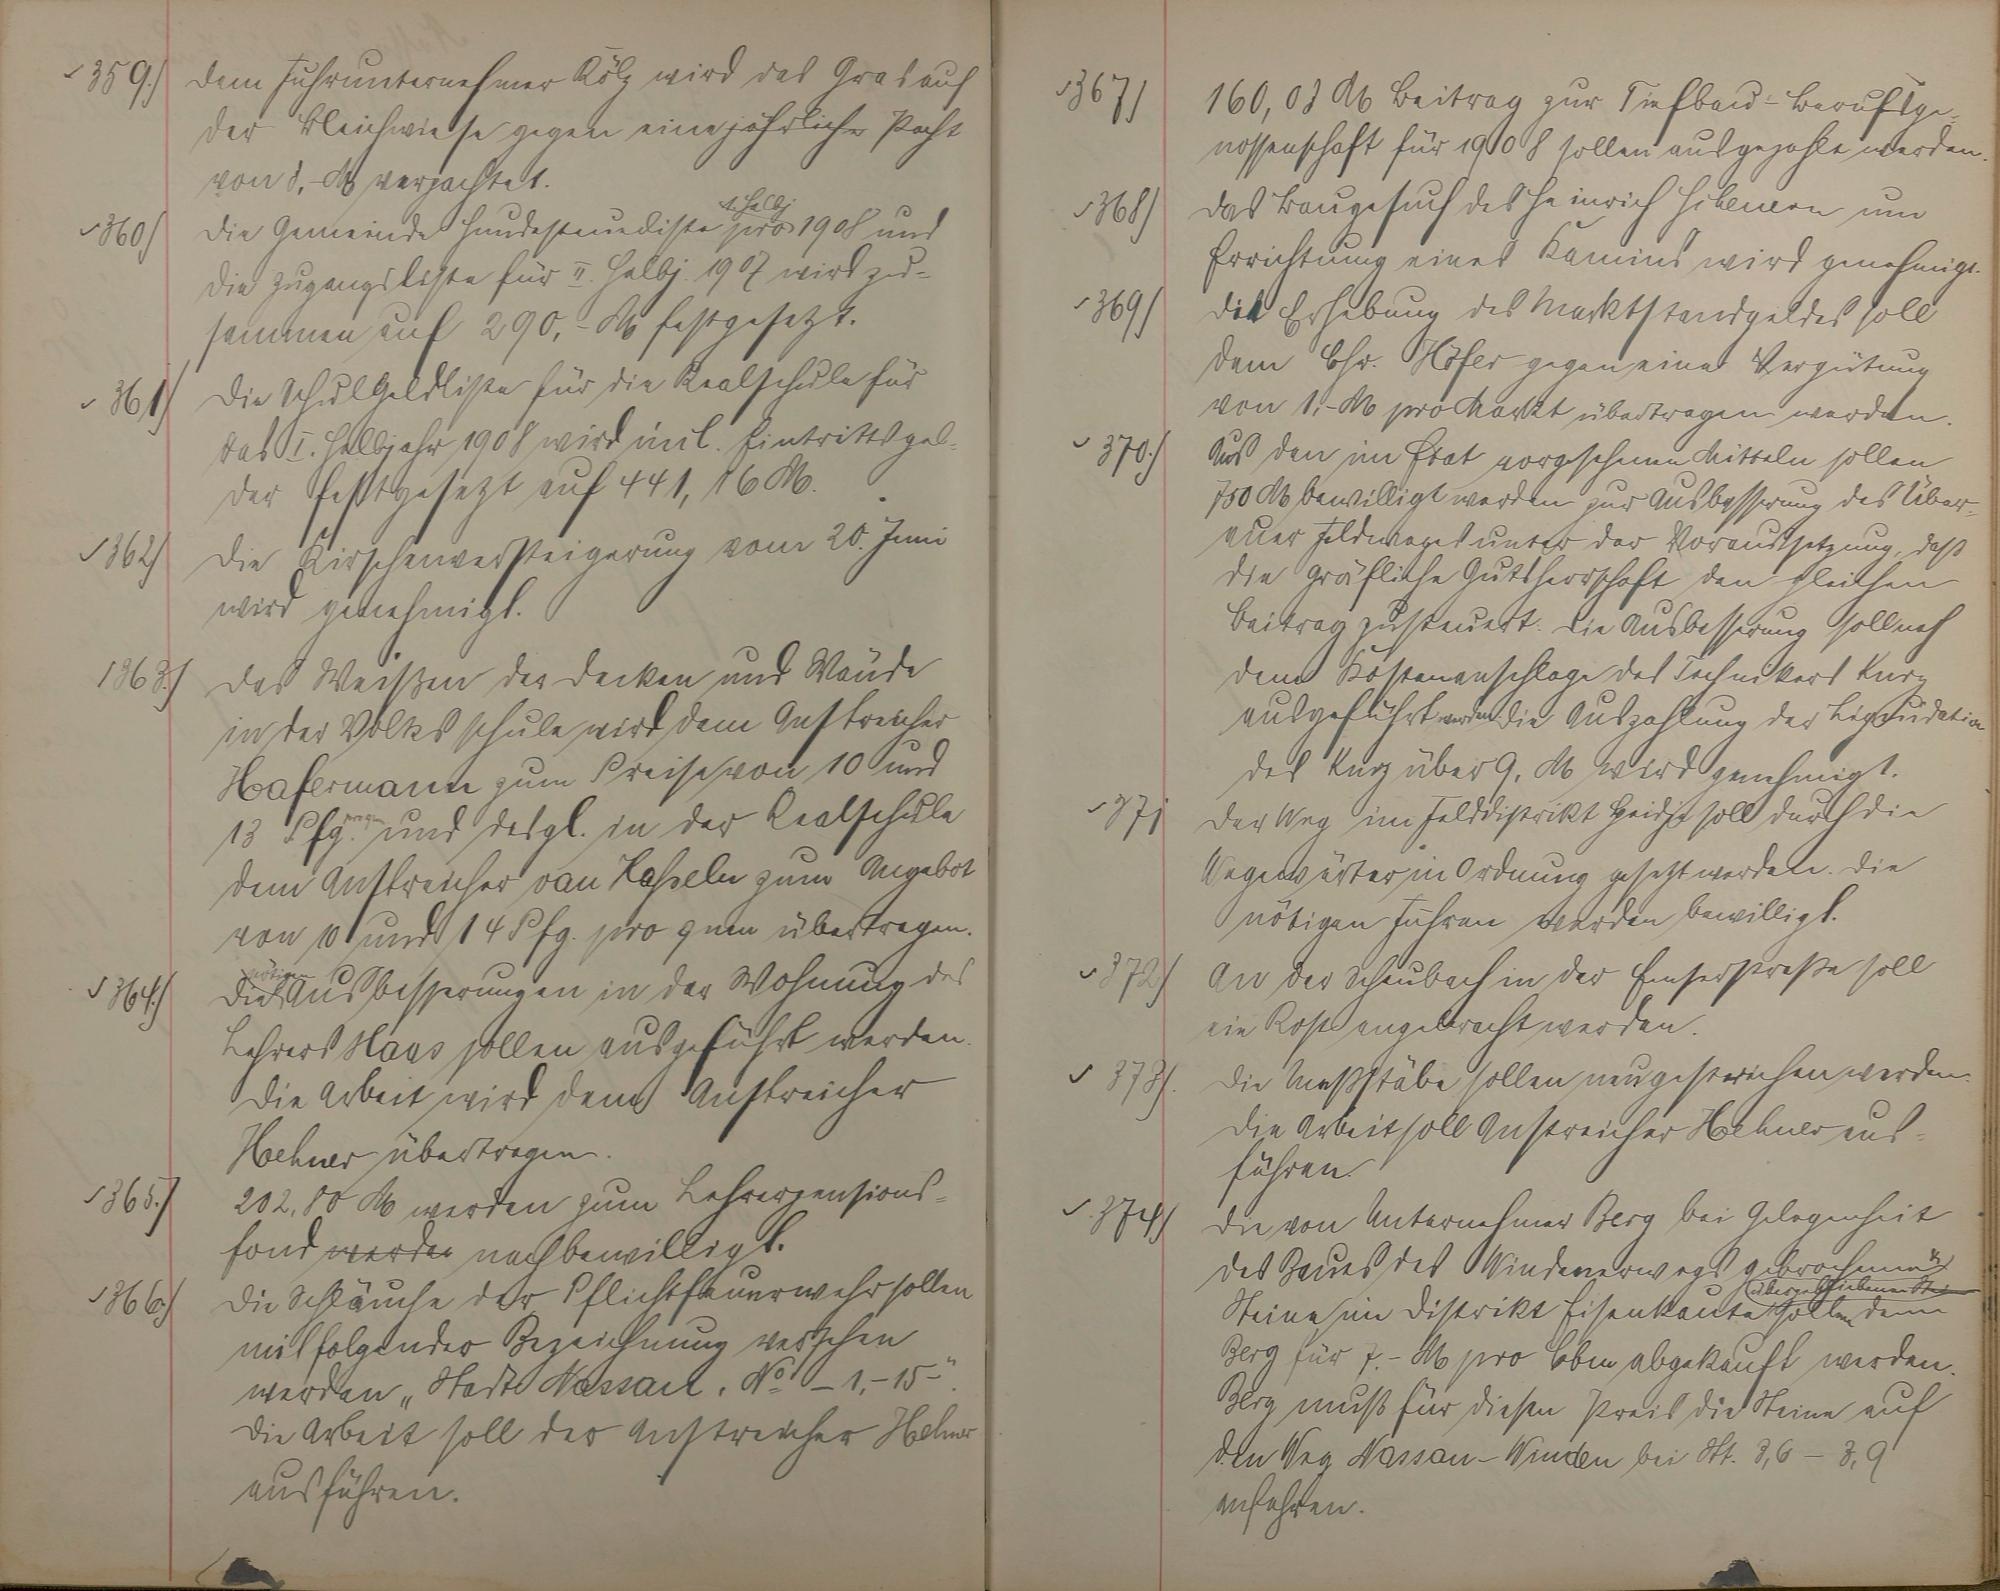 359.) Dem Fuhrunternehmer Kölz wird das Gras auf
der Bleichwiese gegen eine jährliche Pacht
von 8,- M verpachtet.
360) Die Gemeinde Hundesteuerliste pro I. Halbj. 1908 und
die Zugangsliste für II. Halbj. 1907 wird zu-
sammen auf 290,- M festgesetzt.
361) Die Schulgeldliste für die Realschule für
das I. Halbjahr 1908 wird incl. Eintrittsgel-
der festgesetzt auf 441,16 M.
362) Die Kirschenversteigerung vom 20. Juni
wird genehmigt.
363.) Das Weißen der Decken und Wände
in der Volksschule wird dem Anstreicher
Hafermann zum Preise von 10 und
13 Pfg. und desgl. in der Realschule
dem Anstreicher van Hasseln zum Angebot
von 10 und 14 Pfg. pro qm übertragen.
364.) Die nötigen Ausbesserungen in der Wohnung des
Lehrers Haas sollen ausgeführt werden.
Die Arbeit wird dem Anstreicher
Hehner übertragen.
365.) 202,80 M werden zum Lehrerpensions-
fond werden nachbewilligt.
366.) Die Schläuche der Pflichtfeuerwehr sollen
mit folgender Bezeichnung versehen
werden „Stadt Nassau. No – 1,-15-".
Die Arbeit soll der Anstreicher Hehner
ausführen.
367) 160,03 M Beitrag zur Tiefbau-Berufsge-
nossenschaft für 1908 sollen ausgezahlt werden.
368) Das Baugesuch des Heinrich um
Errichtung eines Kamins wird genehmigt.
369) Die Erhebung des Marktstandgeldes soll
dem Chr. Höfer gegen eine Vergütung
von 1,- M pro Markt übertragen werden.
370.) Aus den im Etat vorgesehenen Mitteln sollen
750 M bewilligt werden zur Ausbesserung des Über-
auer Feldweges unter der Voraussetzung, daß
die Gräfliche Gutsherrschaft den gleichen
Beitrag zusteuert. Die Ausbesserung soll nach
dem Kostenanschlage des Technikers Kurz
ausgeführt werden. Die Auszahlung der Liquidation
des Kurz über 9, M wird genehmigt.
371 Der Weg im Felddistrikt soll durch die
Wegewärter in Ordnung gesetzt werden. Die
nötigen Fuhren werden bewilligt.
372) An der Scheubach in der Emserstraße soll
ein Rost angebracht werden.
373). Die Meßstäbe sollen neugestrichen werden.
Die Arbeit soll Anstreicher Hehner aus-
führen.
374) Die von Unternehmer Berg bei Gelegenheit
des Baues des Windenerwegs gebrochenen
übergebliebenen
Steine im Distrikt Eisenkaute sollen dem
Berg für 7.- M pro Cbm abgekauft werden.
Berg muß für diesen Preis die Steine auf
den Weg Nassau-Winden bei St. 3,6 – 3,9
anfahren.